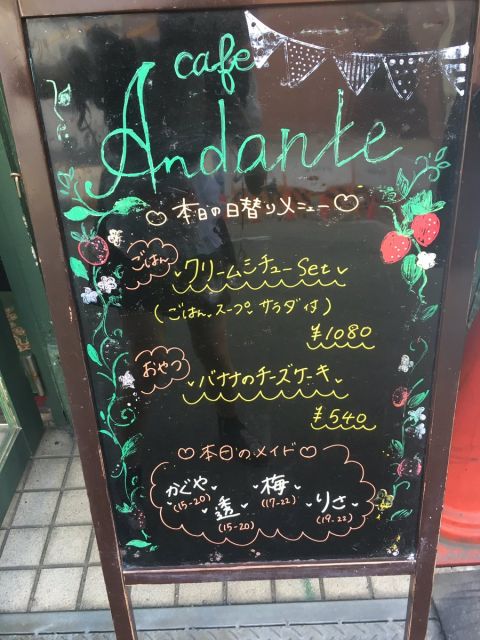 cafe
Andante
♡本日の日替りメニュー♡
ごはん
クリームシチューSet
(ごはん、スープ、サラダ付)
¥1080
おやつ
バナナのチーズケーキ
¥540
♡本日のメイド♡
かぐや 梅
(15-20) (17-22)
透 りさ
(15-20) (19-22)